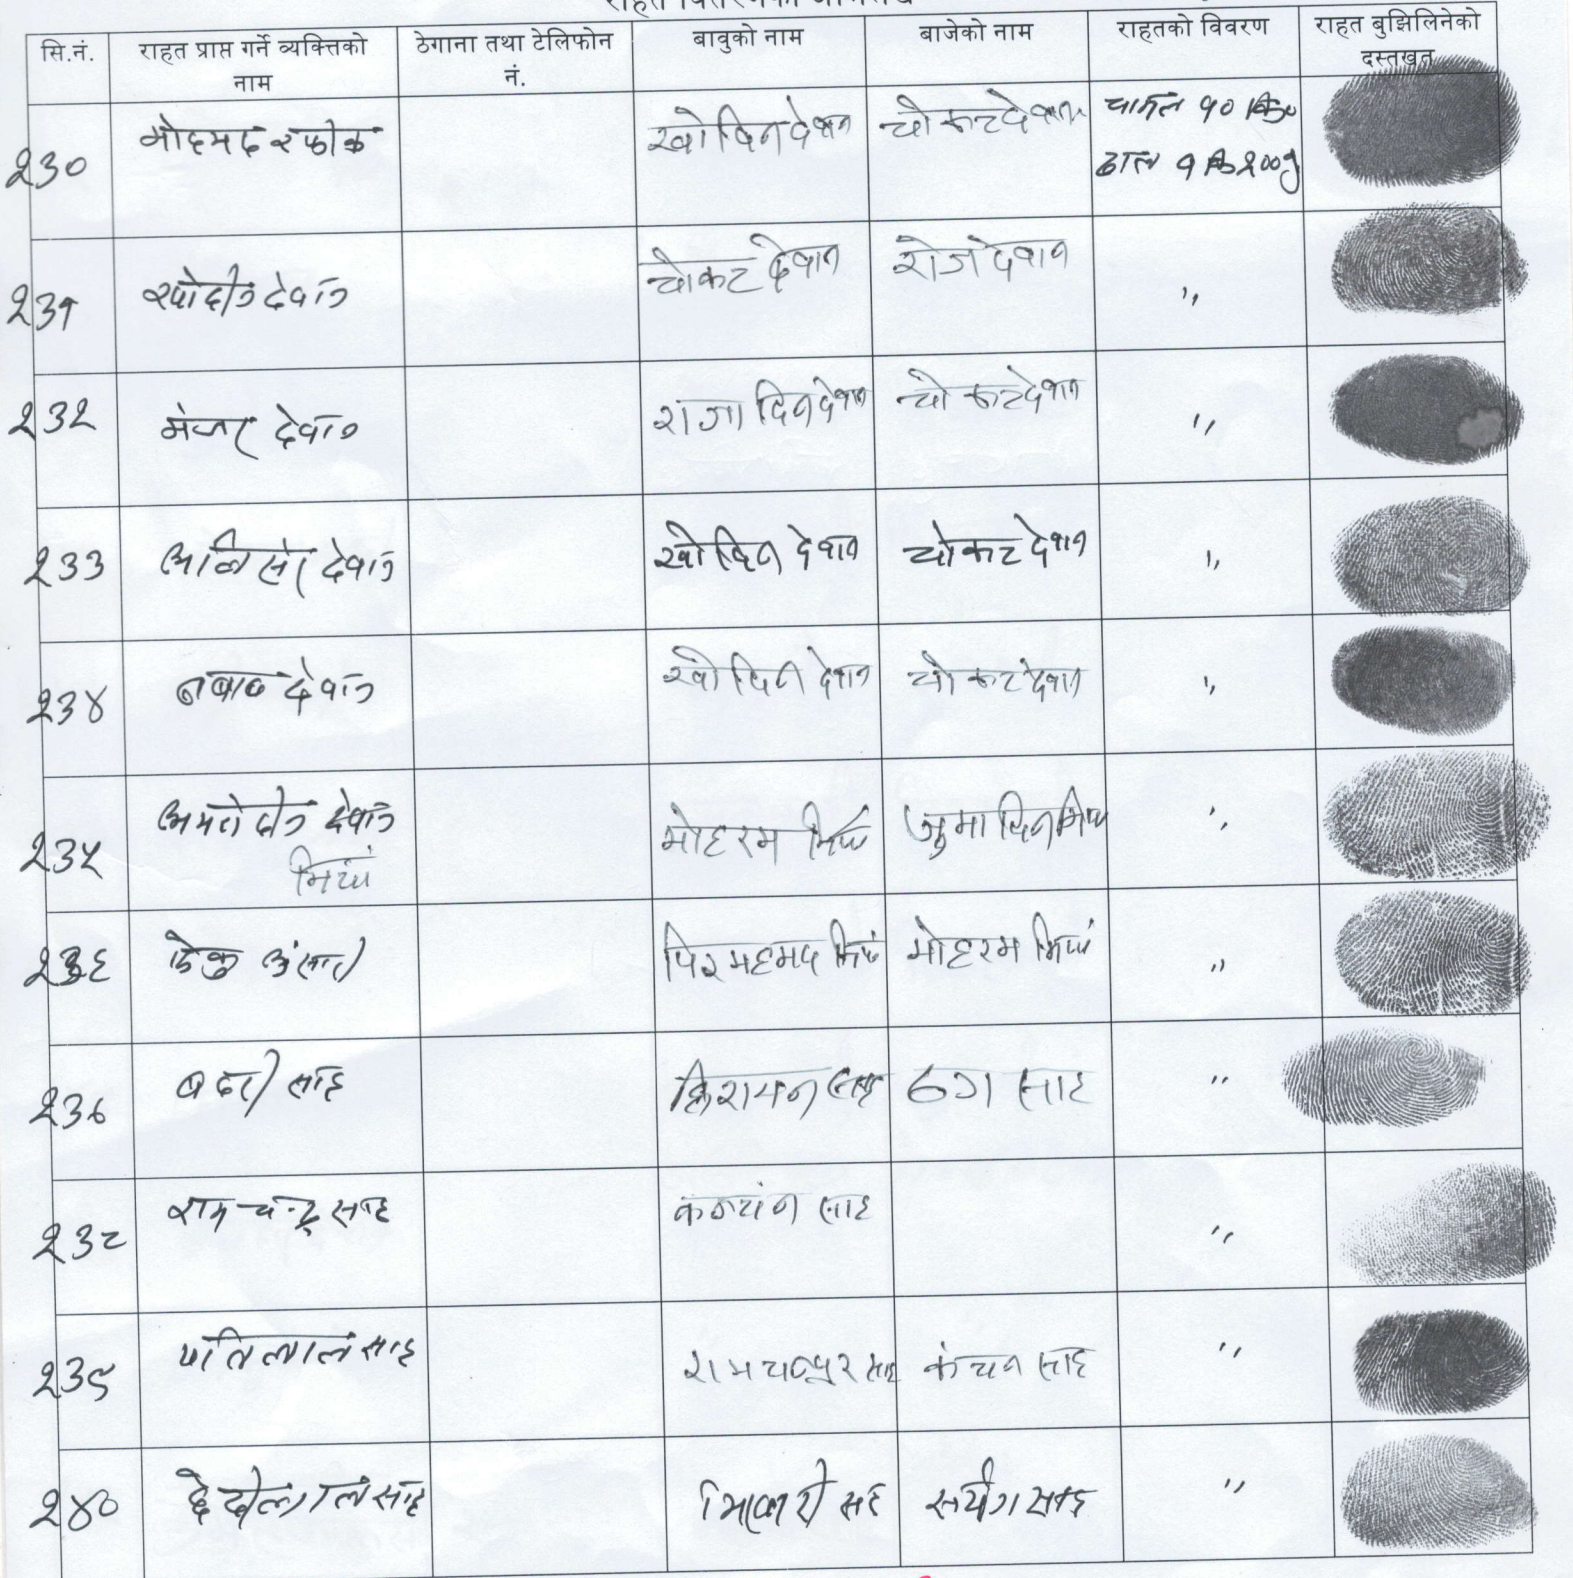 सि.नं. राहत प्राप्त गर्ने व्यक्तिको नाम ठेगाना तथा टेलिफोन नं. बावुको नाम बाजेको नाम राहतको विवरण राहत बुझिलिनेको दस्तखत
२३० मोहमद रफीक खोदिन देवान चोकट देवान चामल १० कि०
दाल १ कि २००g
२३१ खोदीन देवान चोकट देवान रोज देवान ,,
२३२ मंजर देवान राजा दिन देवान चोकट देवान ,,
२३३ देवान खोदिन देवान चोकट देवान ,,
२३४ नबाव देवान खोदिन देवान चोकट देवान ,,
२३५ देवान मोहरम मियां जुमादिन मियां ,,
मियां
२३६ अंसारी पिरमहमद मियां मोहरम मियां ,,
२३७ बदरी साह साह ठग साह ,,
२३८ राम चन्द्र साह कनचन साह ,,
२३९ साह साह कंचन साह ,,
२४० साह भिखारी साह साह ,,